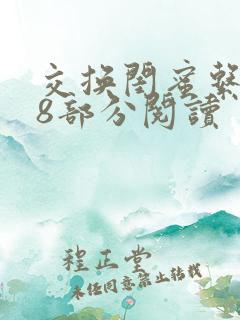 交換閨蜜繫
8部分閱讀
程正堂
未经同意禁止转载